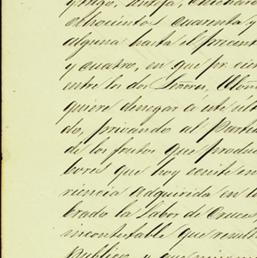 ochocientos cuarenta y
alguna hasta el presen
y cuatro, en que por
entre los dos Señores, Alon
quiere denegar a este ul
do, privando al Parti
de los frutos que produ
bores que hoy
riencia adquirida en l
brado la labor de Cruces
incontestable que result
Publico, y que